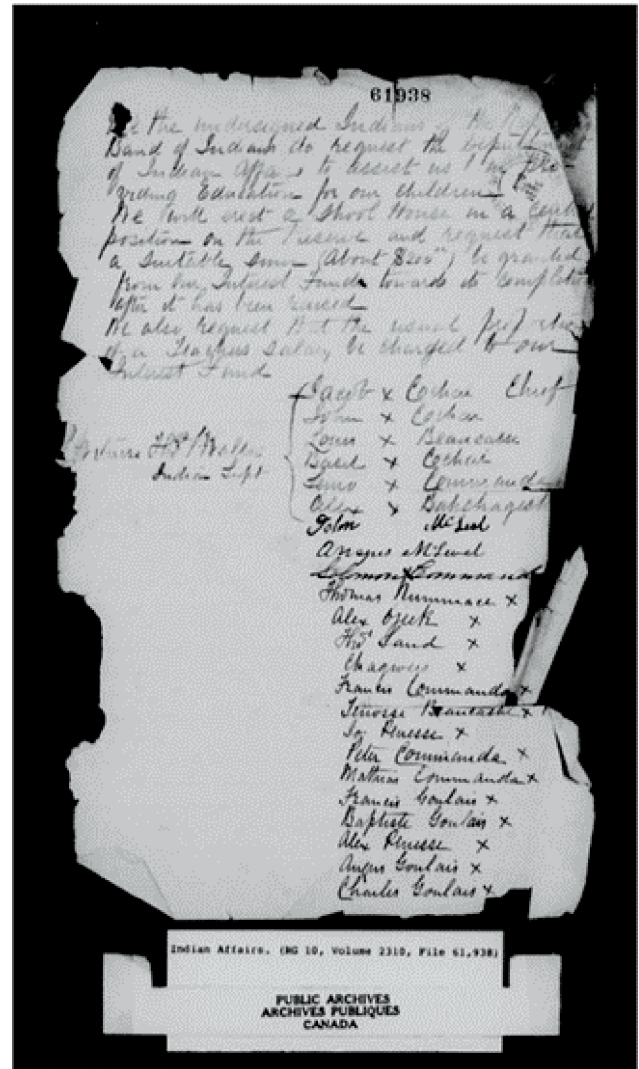 61938
We the undersigned Indians of the
Band of Indians do request the Department
of Indian Affairs to assist us in pro
viding Education for our children
We will erect a School House in a central
position on the Reserve and request that
a suitable sum (About $200") be granted
from our Interest Funds towards its completion
after it has been raised
We also request that the usual proportion
of a Teachers Salary be charged to our
Interest Fund
Jacob x Cochai Chief
John x Cochai
Louis x Beaucaise
Basil x Cochai
x Commanda
Alex x
John McLeod
Angus McLeod
Solomon x Commanda
Witness
Indian Supt
Thomas x
Alex x
Thos Land x
x
Francis Commanda x
Beaucaise x
Penesse x
Peter Commanda x
Mathias Commanda x
Francis Goulais x
Baptiste Goulais x
Alex Penesse x
Angus Goulais x
Charles Goulais x
Indian Affairs. (RG 10, Volume 2310, File 61,938)
PUBLIC ARCHIVES
ARCHIVES PUBLIQUES
CANADA